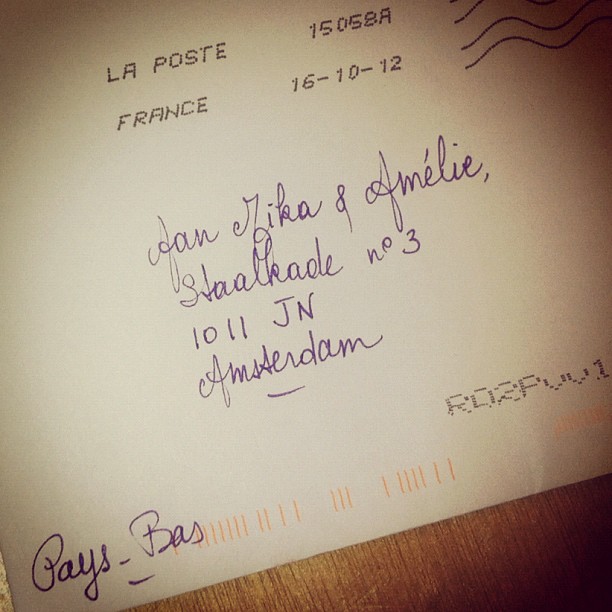 LA POSTE 15058A
FRANCE 16-10-12
Aan Mika & Amélie,
Staalkade nº 3
1011 JN
Amsterdam
R02PVV1
Pays-Bas